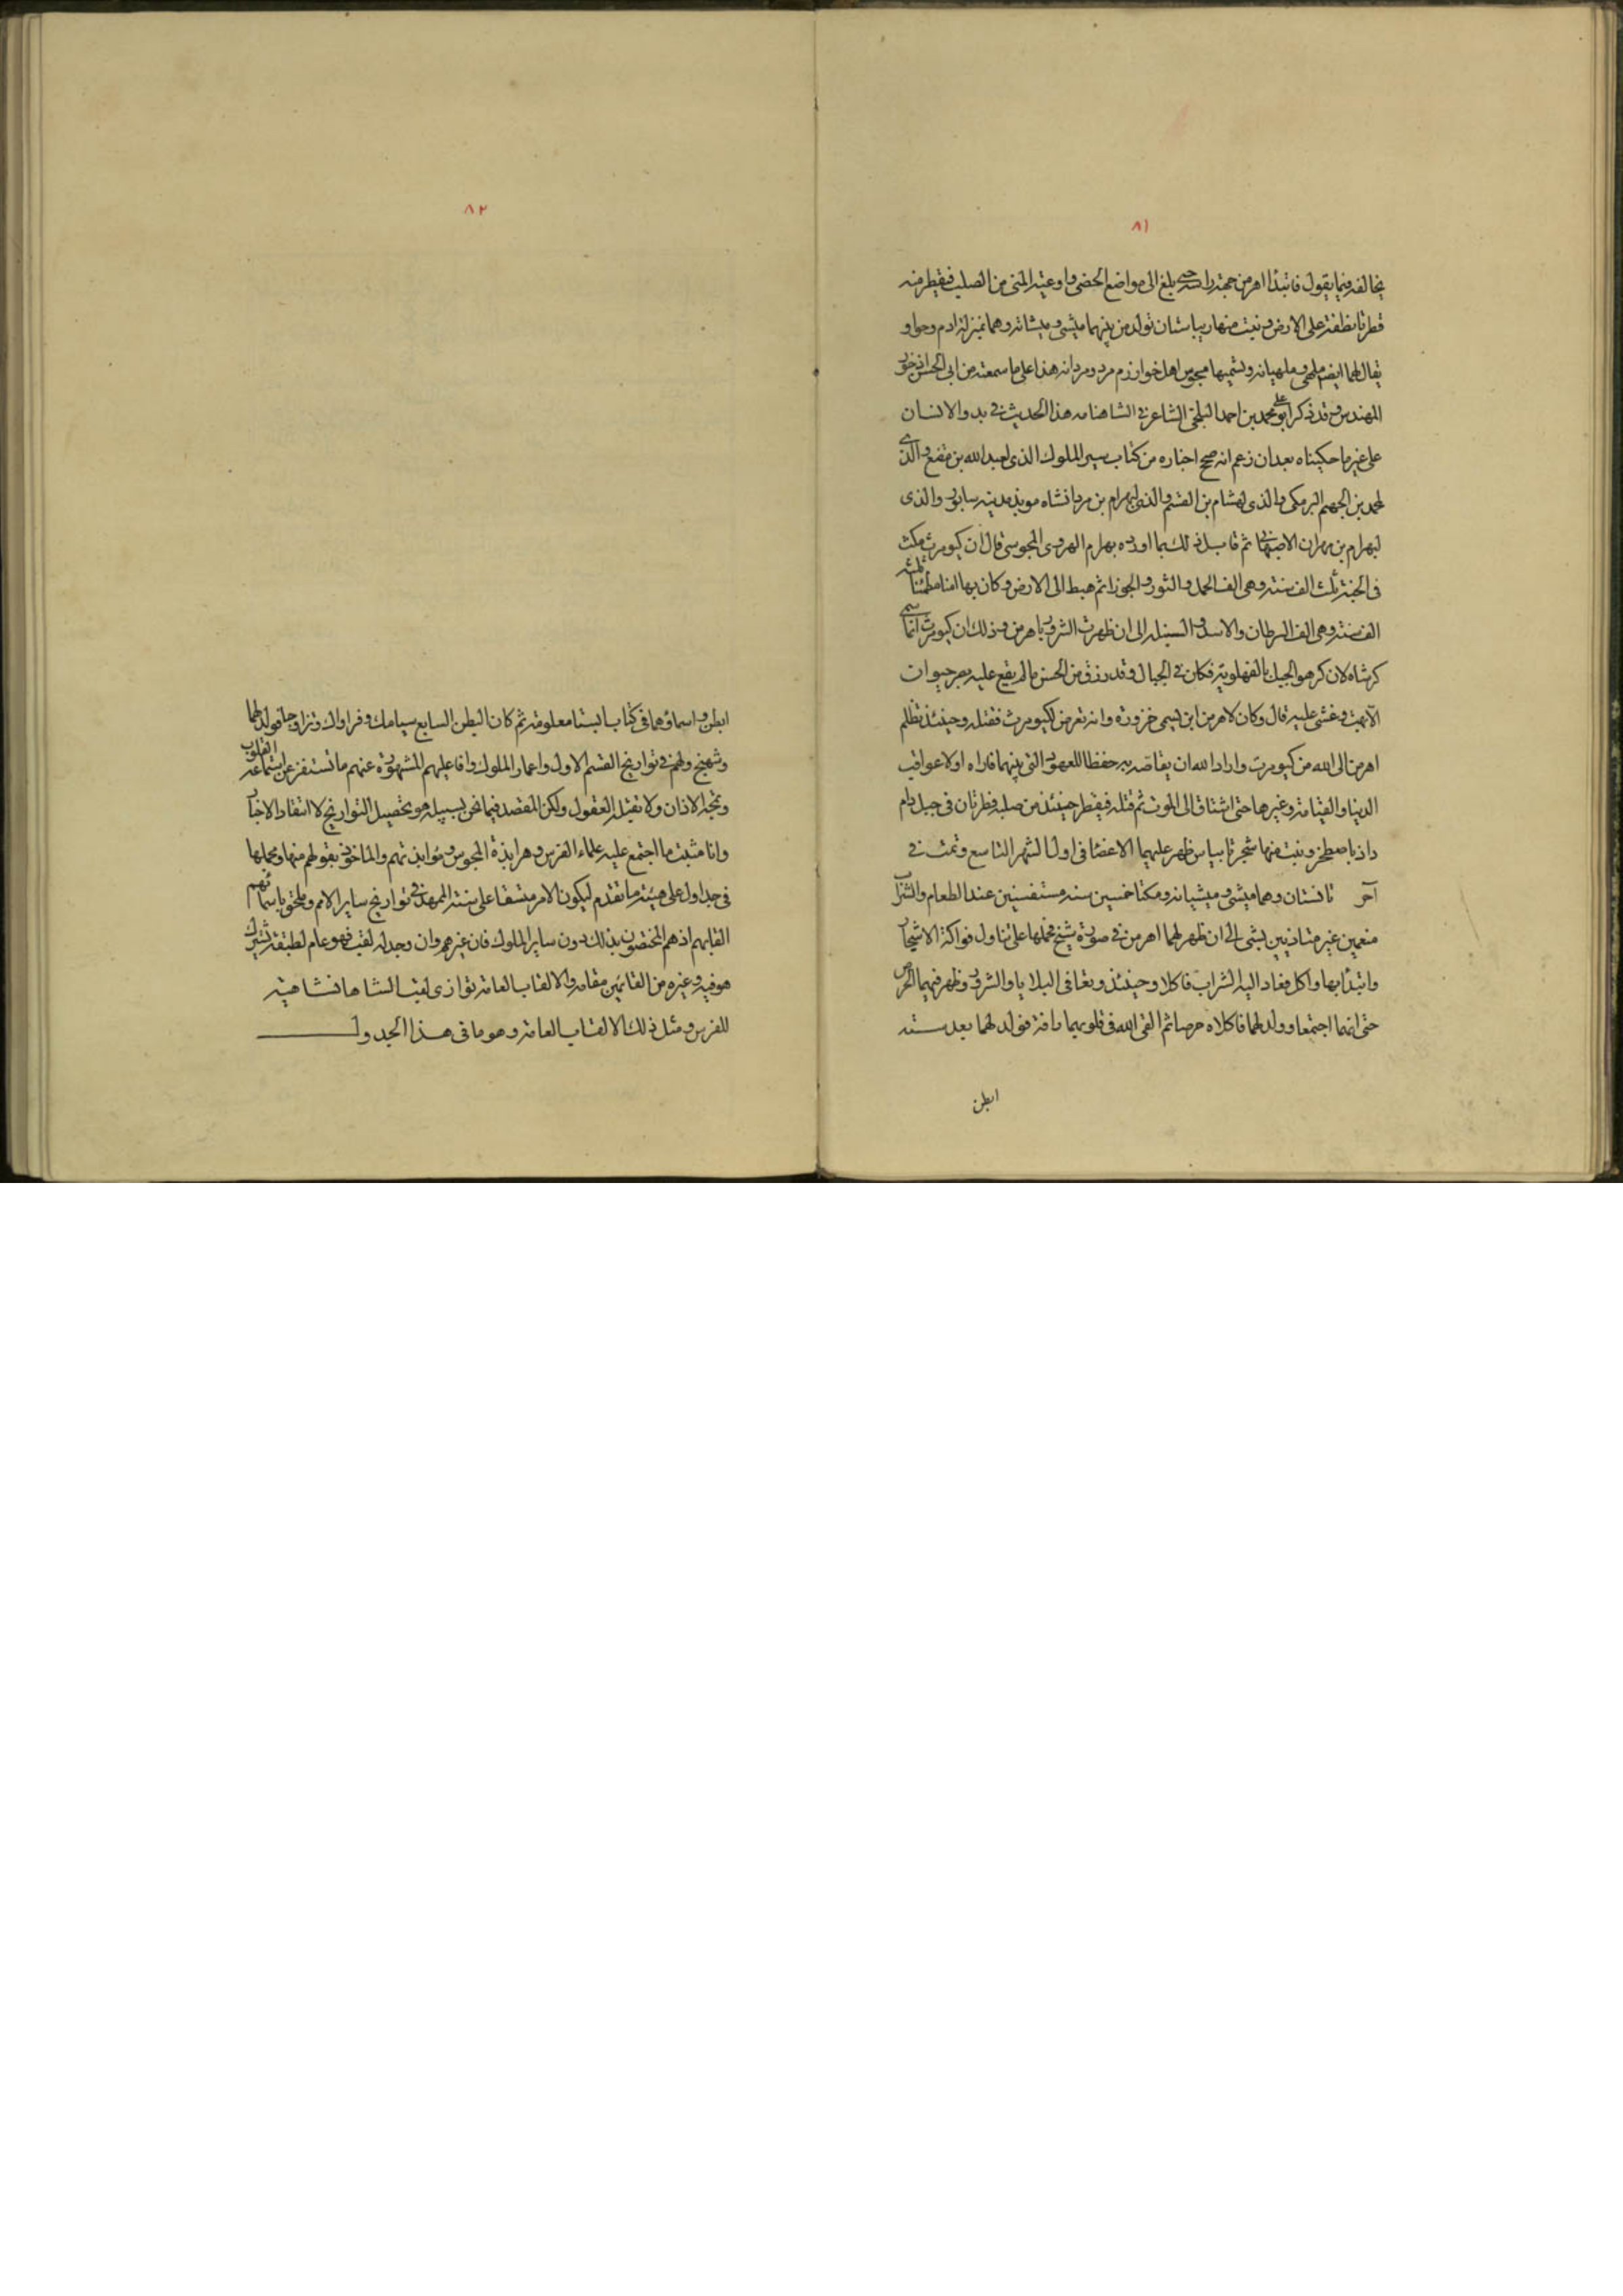 ٨١
يخالفه فيما يقول فابتدا اهرمن من جهة راسه حتى بلغ الى مواضع الخصى واوعية المنى من الصلب فيقطر منه
قطرتا نطفة على الارض ونبت منها ريباستان تولد من بينهما ميشى وميشانه وهما بمنزلة ادم وحوا و
يقال لهما ايضا ملهى وملهيانه ويسميها مجوس اهل خوارزم مرد ومردانه هذا على ما سمعته من ابى الحسن اذرخور
المهندس وقد ذكر ابو على محمد بن احمد البلخى الشاعر فى الشاهنامه هذا الحديث فى بدو الانسان
على غير ما حكيناه بعد ان زعم انه صحح اخباره من كتاب سير الملوك الذى لعبد الله بن مقفع والذى
لمحمد بن الجهم البرمكى والذى لهشام بن القسم والذى لبهرام بن مردانشاه موبذ مدينه سابور والذى
لبهرام بن مهران الاصبهانى ثم قابل ذلك بما اورده بهرام الهروى المجوسى قال ان كيومرث مكث
فى الجنة ثلث الف سنة وهى الف الحمل والثور والجوزا ثم هبط الى الارض وكان بها امنا مطمئنا ثلثه
الف سنة وهى الف السرطان والاسد والسنبله الى ان ظهرت الشرور باهرمن وذلك ان كيومرث انما سمى
كرشاه لان كر هو الجبل بالفهلويه فكان فى الجبال وقد رزق من الحسن ما لم يقع عليه بصر حيوان
الا بهت وغشى عليه قال وكان لاهرمن ابن يسمى خزوره وانه تعرض لكيومرث فقتله وحينئذ تظلم
اهرمن الى الله من كيومرث واراد الله ان يقاصه به حفظا للعهود التى بينهما فاراه اولا عواقب
الدنيا والقيامة وغيرها حتى اشتاق الى الموت ثم قتله فيقطر حينئذ من صلبه قطرتان فى جبل دام
داذ باصطخر ونبت منها شجرتا ريباس ظهر عليهما الاعضا فى اول الشهر التاسع وتمت فى
آخره فانستان وهما ميشى وميشيانه ومكثا خمسين سنه مستغنيين عند الطعام والشراب
منعمين غير متاذيين بشى الى ان ظهر لهما اهرمن فى صورة شيخ فحملها على تناول فواكة الاشجار
وابتدا بها واكل فعاد اليه الشراب فاكلا وحينئذ وقعا فى البلايا والشرور وظهر فيهما الحرص
حتى انهما اجتمعا وولد لهما فاكلاه حرصا ثم القى الله فى قلوبهما رافة فولد لهما بعد ستة
ابطن
٨٢
ابطن واسماؤهما فى كتاب ابستا معلومة ثم كان البطن السابع سيامك وفراواك وتزاوجا فولد لهما
وشهنج ولهم فى تواريخ القسم الاول واعمار الملوك وافاعيلهم المشهورة عنهم ما تستنفر عن استماعه القلوب
وتمجه الاذان ولا تقبله العقول ولكن المقصد فيما نحن بسبيله هو تحصيل التواريخ لا انتقاد الاخبار
وانا مثبت ما اجتمع عليه علماء الفرس وهرابذة المجوس وموابذتهم والماخوذ بقولهم منها ومجملها
فى جداول على هيئة ما تقدم ليكون الامر متسقا على سنته الممهد فى تواريخ ساير الامم وملحق باسمائهم
القابهم اذ هم المختصون بذلك دون ساير الملوك فان غيرهم وان وجد له لقب فهو عام لطبقة يشترك
هو فيه وغيره من القائمين مقامه والالقاب العامة توازى لقب الشاهانشاهية
للفرس ومثل ذلك الالقاب العامة وهو ما فى هذا الجدول